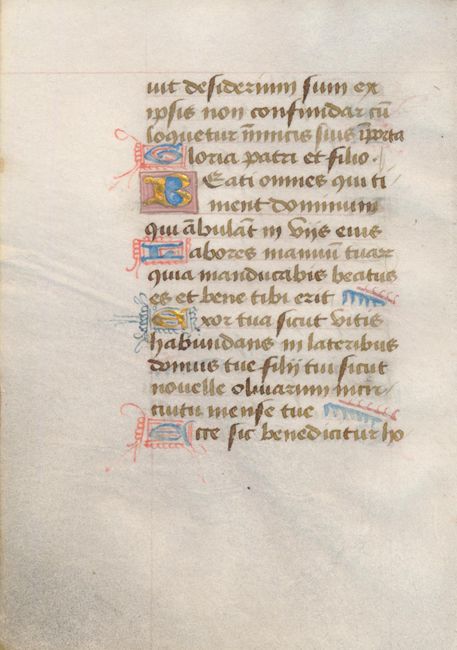 uit desiderium suum ex
ipsis non confundar cū
loquetur īimicis suis ī porta
Gloria patri et filio.
Beati omnes qui ti
ment dominum
qui ābulāt in viis eius
Labores manuū tuar
quia manducabis beatus
es et bene tibi erit
Uxor tua sicut vitis
habundans in lateribus
domus tue filii tui sicut
nouelle oliuarum in cir
cuitu mense tue
Ecce sic benedicitur ho